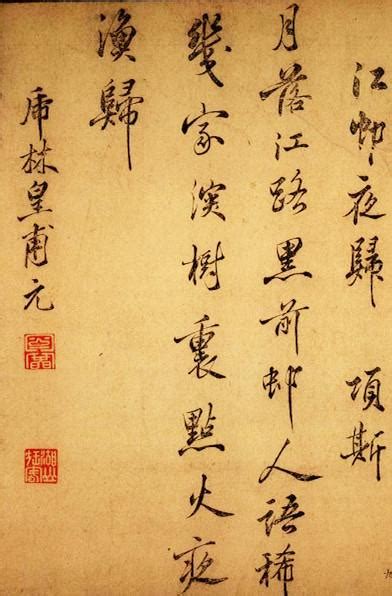 江邨夜歸 項斯
月落江路黑前邨人語稀
幾家深樹裏點火夜
漁歸
虎林皇甫元